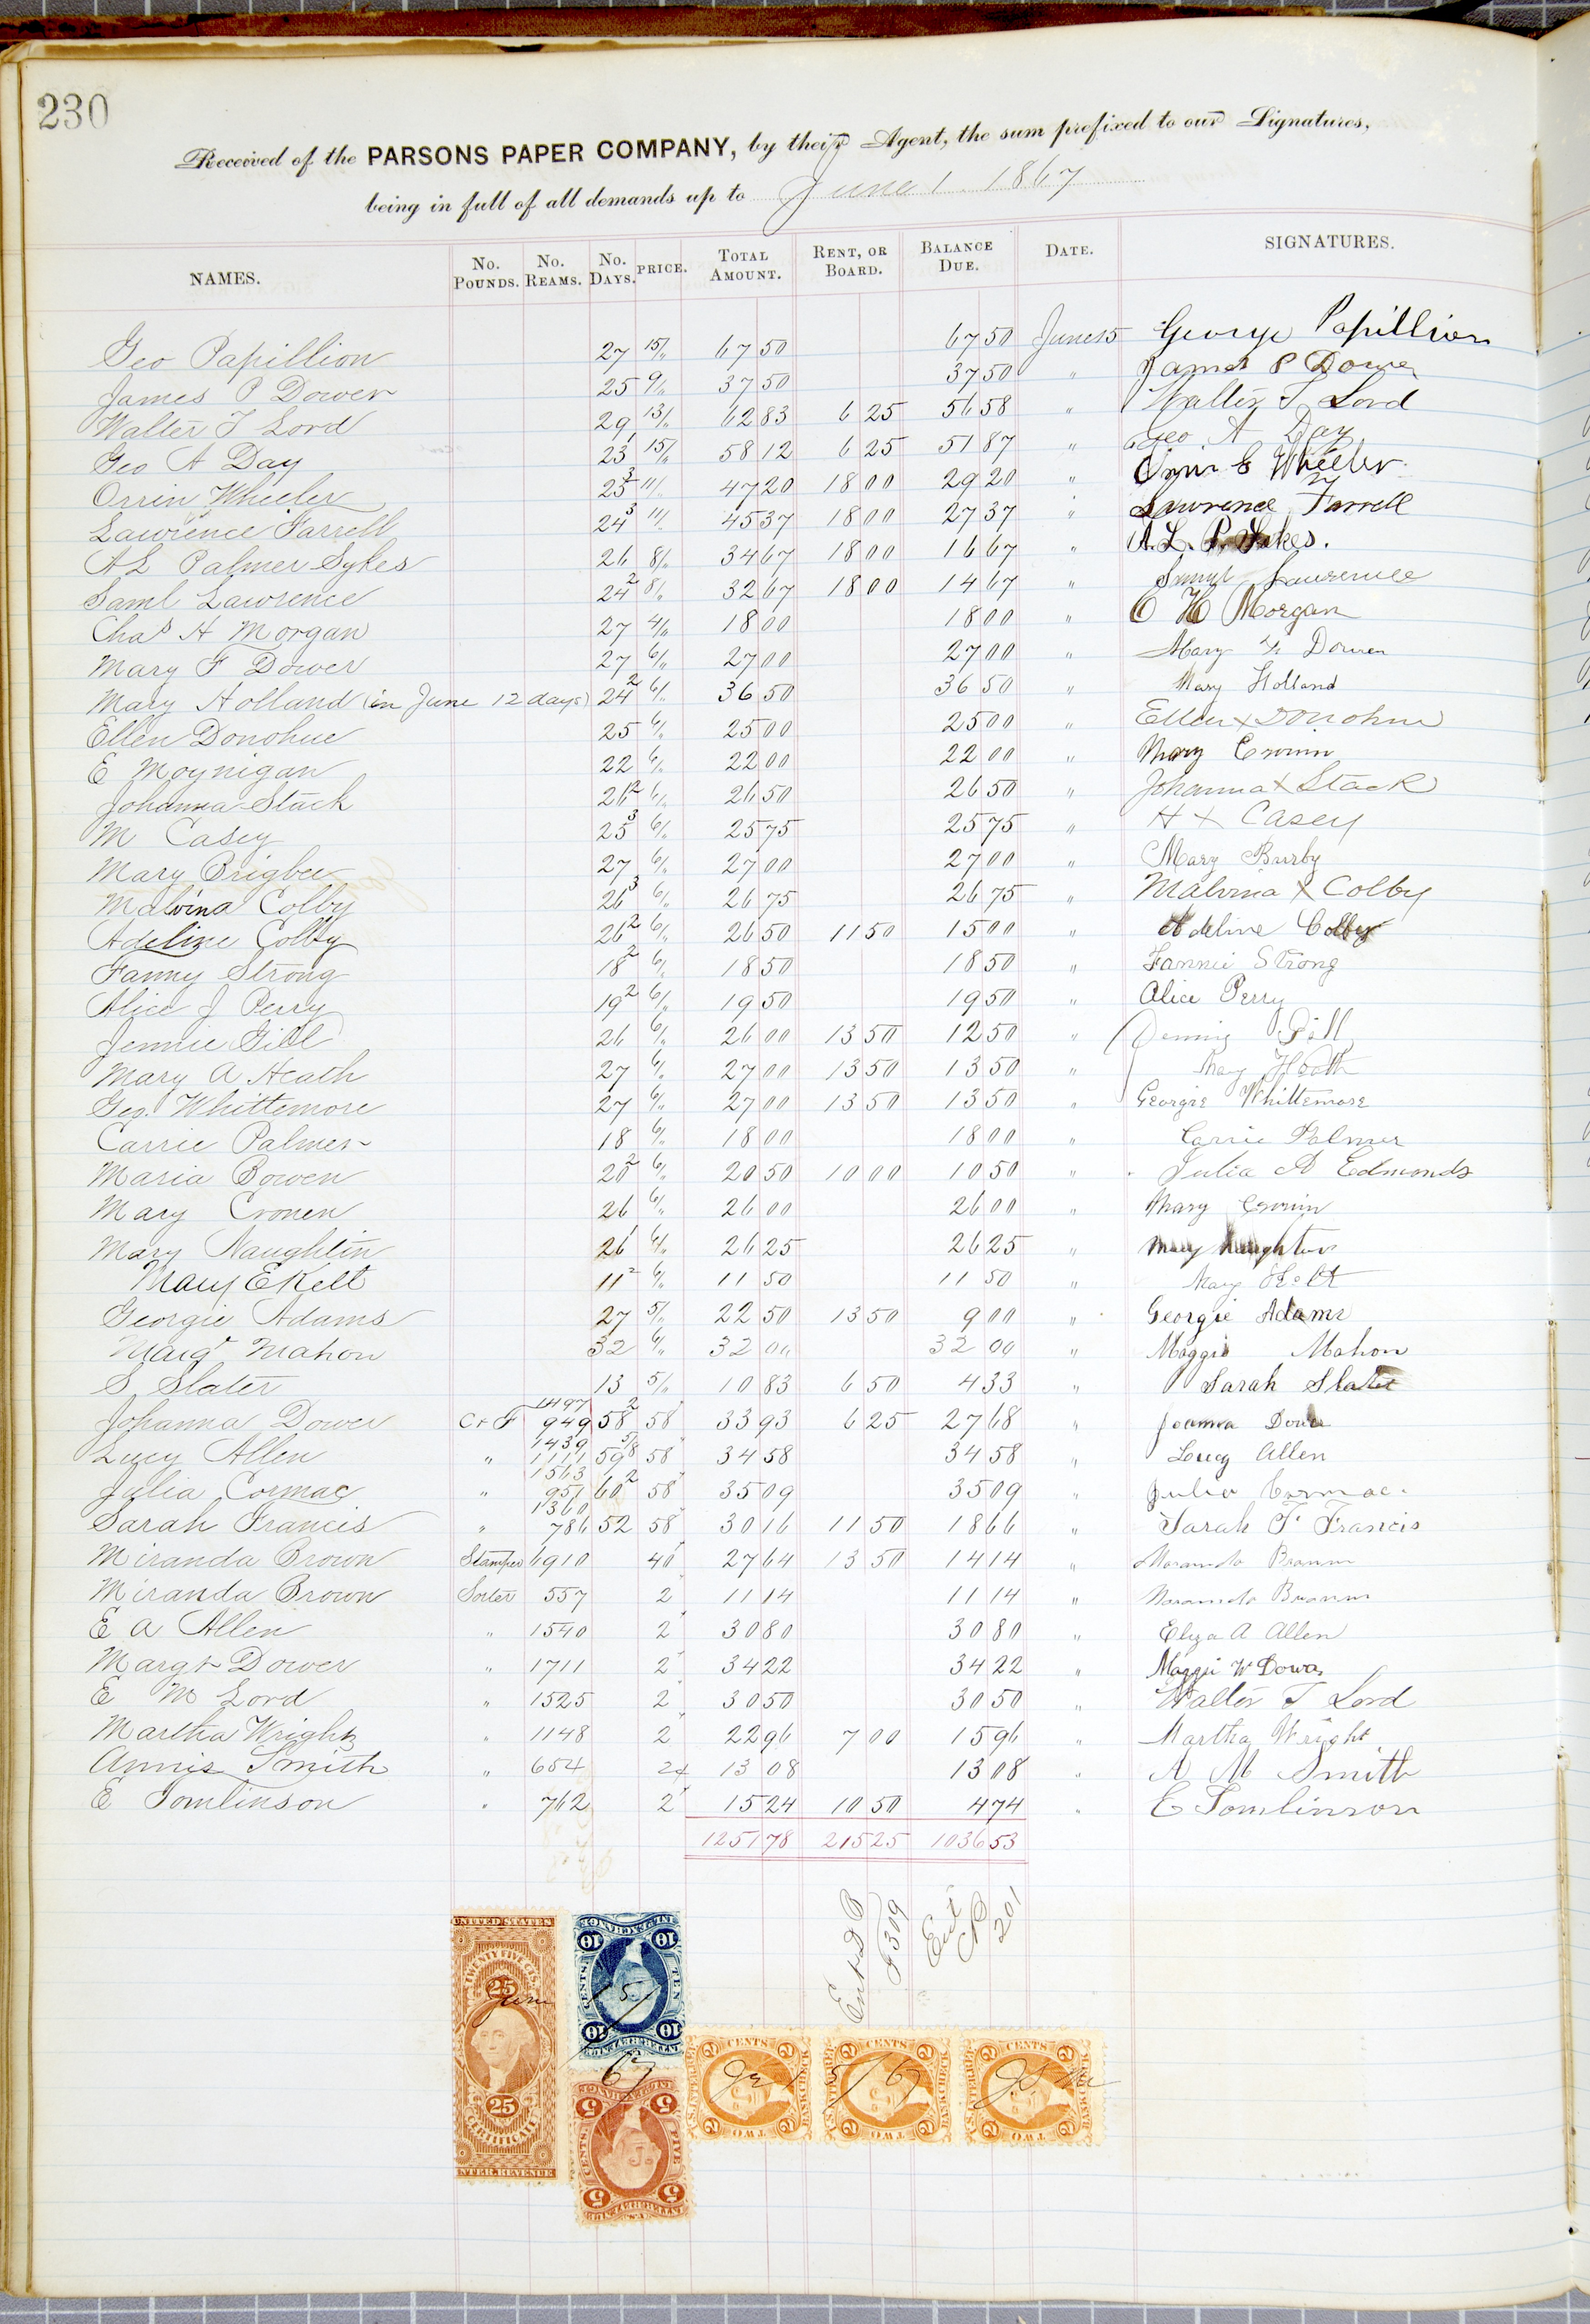 230
Received of the PARSONS PAPER COMPANY, by their Agent, the sum prefixed to our Signatures,
being in full of all demands up to June 1 1867
NAMES. No. Pounds. No. Reams. No. Days. PRICE. Total Amount. Rent, or Board. Balance Due. Date. SIGNATURES.
Geo Papillion 27 15/" 67 50 67 50 June 15 George Papillion
James P Dower 25 9/" 37 50 37 50 " James P Dower
Walter T Lord 29 13/" 62 83 6 25 56 58 " Walter T Lord
Geo A Day 23 1 15/" 58 12 6 25 51 87 " Geo A Day
Orrin Wheeler 25 3 11/" 47 20 18 00 29 20 " Orrin E Wheeler
Lawrence Farrell 24 3 11/" 45 37 18 00 27 37 " Lawrence Farrell
A L Palmer Sykes 26 8/" 34 67 18 00 16 67 " A. L. P. Sykes.
Saml Lawrence 24 2 8/" 32 67 18 00 14 67 " Saml Lawrence
Chas H Morgan 27 4/" 18 00 18 00 " C H Morgan
Mary F Dower 27 6/" 27 00 27 00 " Mary F Dower
Mary Holland (in June 12 days) 24 2 6/" 36 50 36 50 " Mary Holland
Ellen Donohue 25 6/" 25 00 25 00 " Ellen x Donohue
E Moynigan 22 6/" 22 00 22 00 " Mary Cronin
Johanna Stack 26 2 6/" 26 50 26 50 " Johanna x Stack
M Casey 25 3 6/" 25 75 25 75 " H x Casey
Mary Brigbee 27 6/" 27 00 27 00 " Mary Burby
Malvina Colby 26 3 6/" 26 75 26 75 " Malvina x Colby
Adeline Colby 26 2 6/" 26 50 11 50 15 00 " Adeline Colby
Fanny Strong 18 2 6/" 18 50 18 50 " Fannie Strong
Alice J Perry 19 2 6/" 19 50 19 50 " Alice Perry
Jennie Gill 26 6/" 26 00 13 50 12 50 " Jennie Gill
Mary A Heath 27 6/" 27 00 13 50 13 50 " Mary Heath
Geo. Whittemore 27 6/" 27 00 13 50 13 50 " Georgie Whittemore
Carrie Palmer 18 6/" 18 00 18 00 " Carrie Palmer
Maria Bowen 20 2 6/" 20 50 10 00 10 50 " Julia A Edmonds
Mary Cronen 26 6/" 26 00 26 00 " Mary Cronin
Mary Naughtin 26 1 6/" 26 25 26 25 " Mary Naughton
Mary E Kelt 11 2 6/" 11 50 11 50 " Mary Kelt
Georgie Adams 27 5/" 22 50 13 50 9 00 " Georgie Adams
Margt Mahon 32 6/" 32 00 32 00 " Maggie Mahon
S. Slater 13 5/" 10 83 6 50 4 33 " Sarah Slater
Johanna Dower C & F 1497 949 58 2 58 33 93 6 25 27 68 " Joanna Dower
Lucy Allen " 1439 1111 59 5/8 58 34 58 34 58 " Lucy Allen
Julia Cormac " 1563 951 60 2 58 35 09 35 09 " Julia Cormac.
Sarah Francis " 1360 786 52 58 30 16 11 50 18 66 " Sarah F Francis
Miranda Brown Stamper 6910 40 27 64 13 50 14 14 " Maranda Brown
Miranda Brown Sorter 557 2 11 14 11 14 " Maranda Brown
E A Allen " 1540 2 30 80 30 80 " Eliza A Allen
Margt Dower " 1711 2 34 22 34 22 " Maggie W Dower
E M Lord " 1525 2 30 50 30 50 " Walter T Lord
Martha Wright " 1148 2 22 96 7 00 15 96 " Martha Wright
Annis Smith " 654 2 13 08 13 08 " A M Smith
E Tomlinson " 762 2 15 24 10 50 4 74 " E Tomlinson
1251 78 215 25 1036 53
Ent D B
F 309
Ent
201
UNITED STATES
TWENTY FIVE CTS.
25
June
25
CERTIFICATE
INTER. REVENUE
10 10
CENTS TEN
15/
10 10
67
5 5
CENTS FIVE
5 5
CENTS U.S. INTER. REV. BANK CHECK TWO 2
CENTS U.S. INTER. REV. BANK CHECK TWO 2
CENTS U.S. INTER. REV. BANK CHECK TWO 2
Je 15/67